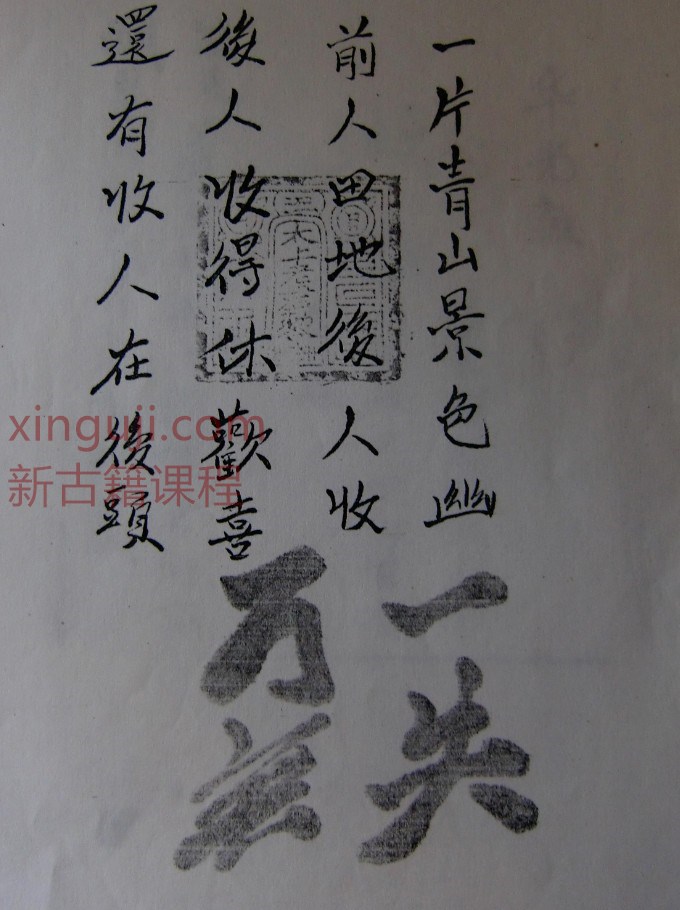 一片青山景色幽
前人田地後人收
後人收得休歡喜
還有收人在後頭
一失
万无
xinguji.com
新古籍课程